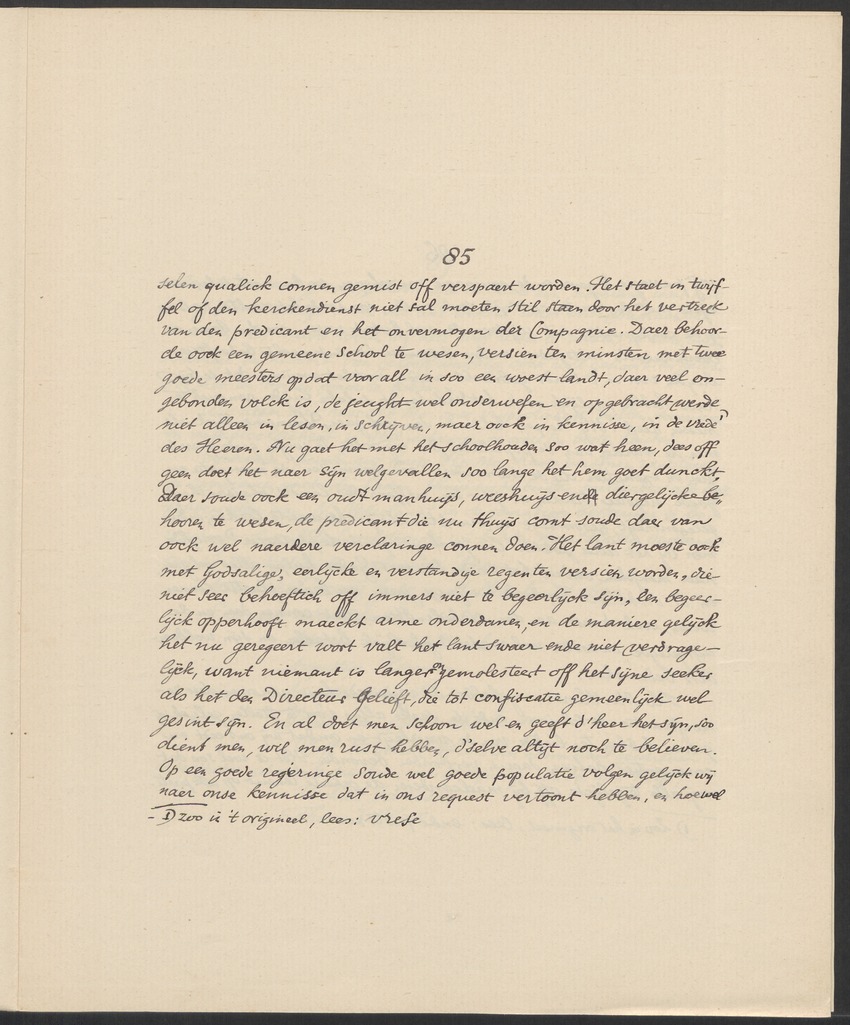 85
selen qualick connen gemist off verspaert worden. Het staet in twijf-
fel of den kerckendienst niet sal moeten stil staen door het vertreck
van den predicant en het onvermogen der Compagnie. Daer behoor-
de oock een gemeene School te wesen, versien ten minsten met twee
goede meesters opdat voor all in soo een woest landt, daer veel on-
gebonden volck is, de jeught wel onderwesen en opgebracht werde
niet alleen in lesen, in schrijven, maer oock in kennisse, in de vrede 1)
des Heeren. Nu gaet het met het schoolhouden soo wat heen, dees off
geen doet het naer sijn welgevallen soo lange het hem goet dunckt.
Daer soude oock een oudt manhuijs, weeshuijs ende diergelijcke be„
hooren te wesen, de predicant die nu thuijs comt soude daer van
oock wel naerdere verclaringe connen doen. Het lant moeste oock
met Godsalige, eerlijcke en verstandije regenten versien worden, die
niet seer behoeftich off immers niet te begeerlijck sijn, een begeer-
lijck opperhooft maeckt arme onderdanen, en de maniere gelijck
het nu geregeert wort valt het lant swaer ende niet verdrage-
lijck, want niemant is langer gemolesteert off het sijne seeker
als het den Directeur Gelieft, die tot confiscatie gemeenlijck wel
gesint sijn. En al doet men schoon wel en geeft d'heer het sijn, soo
dient men, wil men rust hebben, d'selve altijt noch te believen.
Op een goede regeringe soude wel goede populatie volgen gelijck wij
naer onse kennisse dat in ons request vertoont hebben, en hoewel
- 1) zoo is 't origineel, lees: vrese